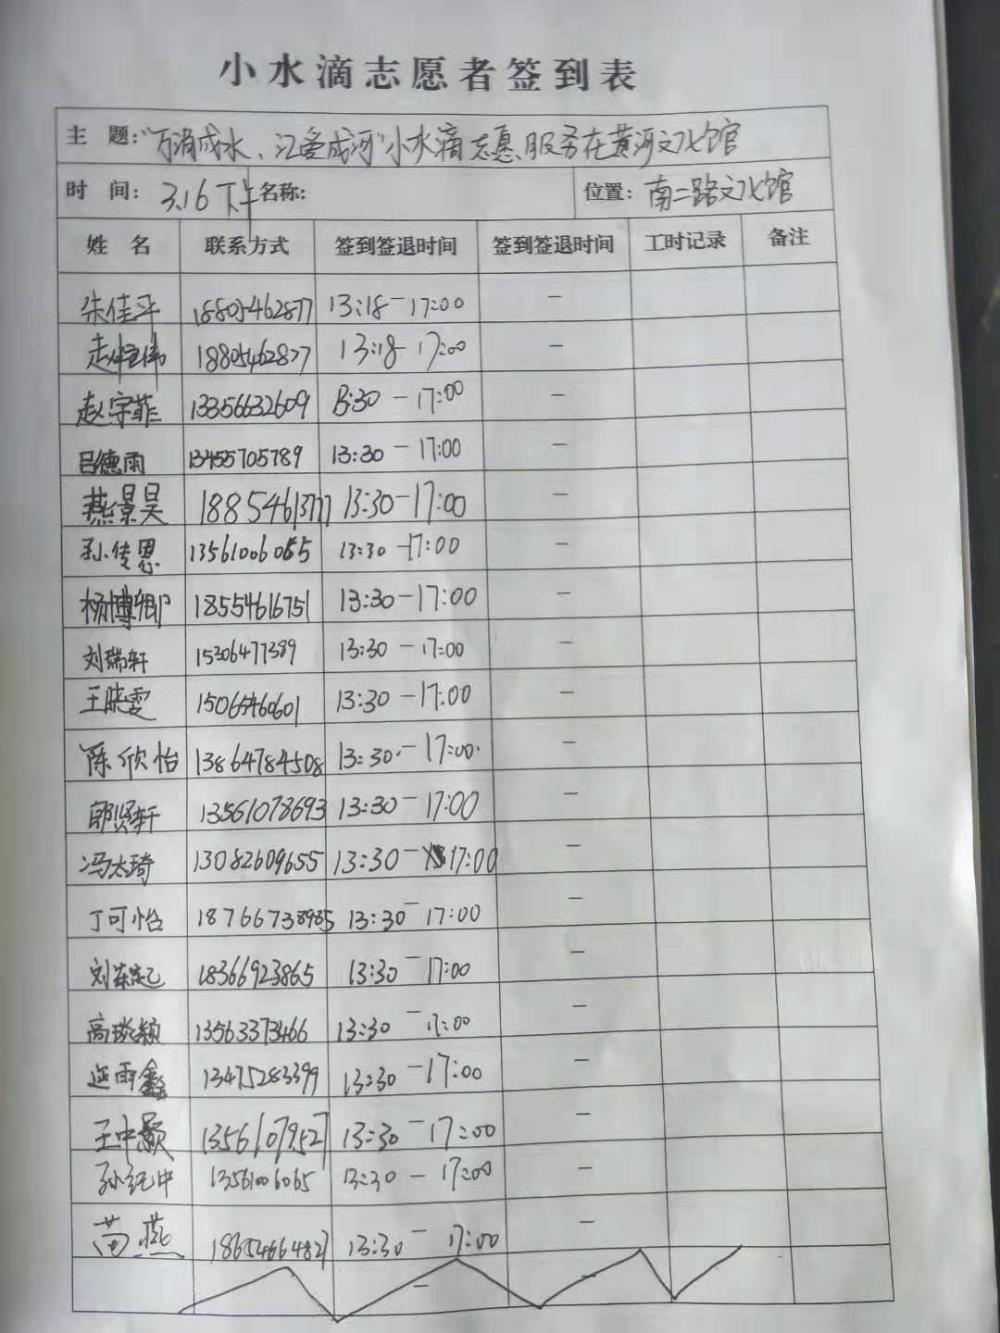 小水滴志愿者签到表
主 题:"万涓成水、汇爱成河"小水滴志愿服务在黄河文化馆
时 间: 3.16下午 名称: 位置: 南二路文化馆
姓 名 联系方式 签到签退时间 签到签退时间 工时记录 备注
朱佳平 18805462877 13:18-17:00 -
18805462877 13:18 17:00 -
赵宇菲 13356632609 13:30 - 17:00 -
吕德雨 13455705789 13:30 - 17:00 -
燕景昊 18854613777 13:30-17:00 -
孙传恩 13561006065 13:30 -17:00 -
杨博卿 18554616751 13:30-17:00 -
刘瑞轩 15306477389 13:30 - 17:00 -
王晓雯 15065460601 13:30 -17:00 -
陈欣怡 13864784508 13:30 - 17:00 -
郭贤轩 13561078693 13:30- 17:00 -
冯太琦 13082609655 13:30 - 17:00 -
丁可怡 18766738935 13:30 - 17:00 -
18366923865 13:30 - 17:00 -
高璇颖 13563373466 13:30 - 17:00 -
延雨鑫 13475283399 13:30 -17:00 -
王中颢 13561079527 13:30 - 17:00 -
孙纪中 13561006065 13:30 - 17:00 -
苗燕 18654664827 13:30 - 17:00 -
- -